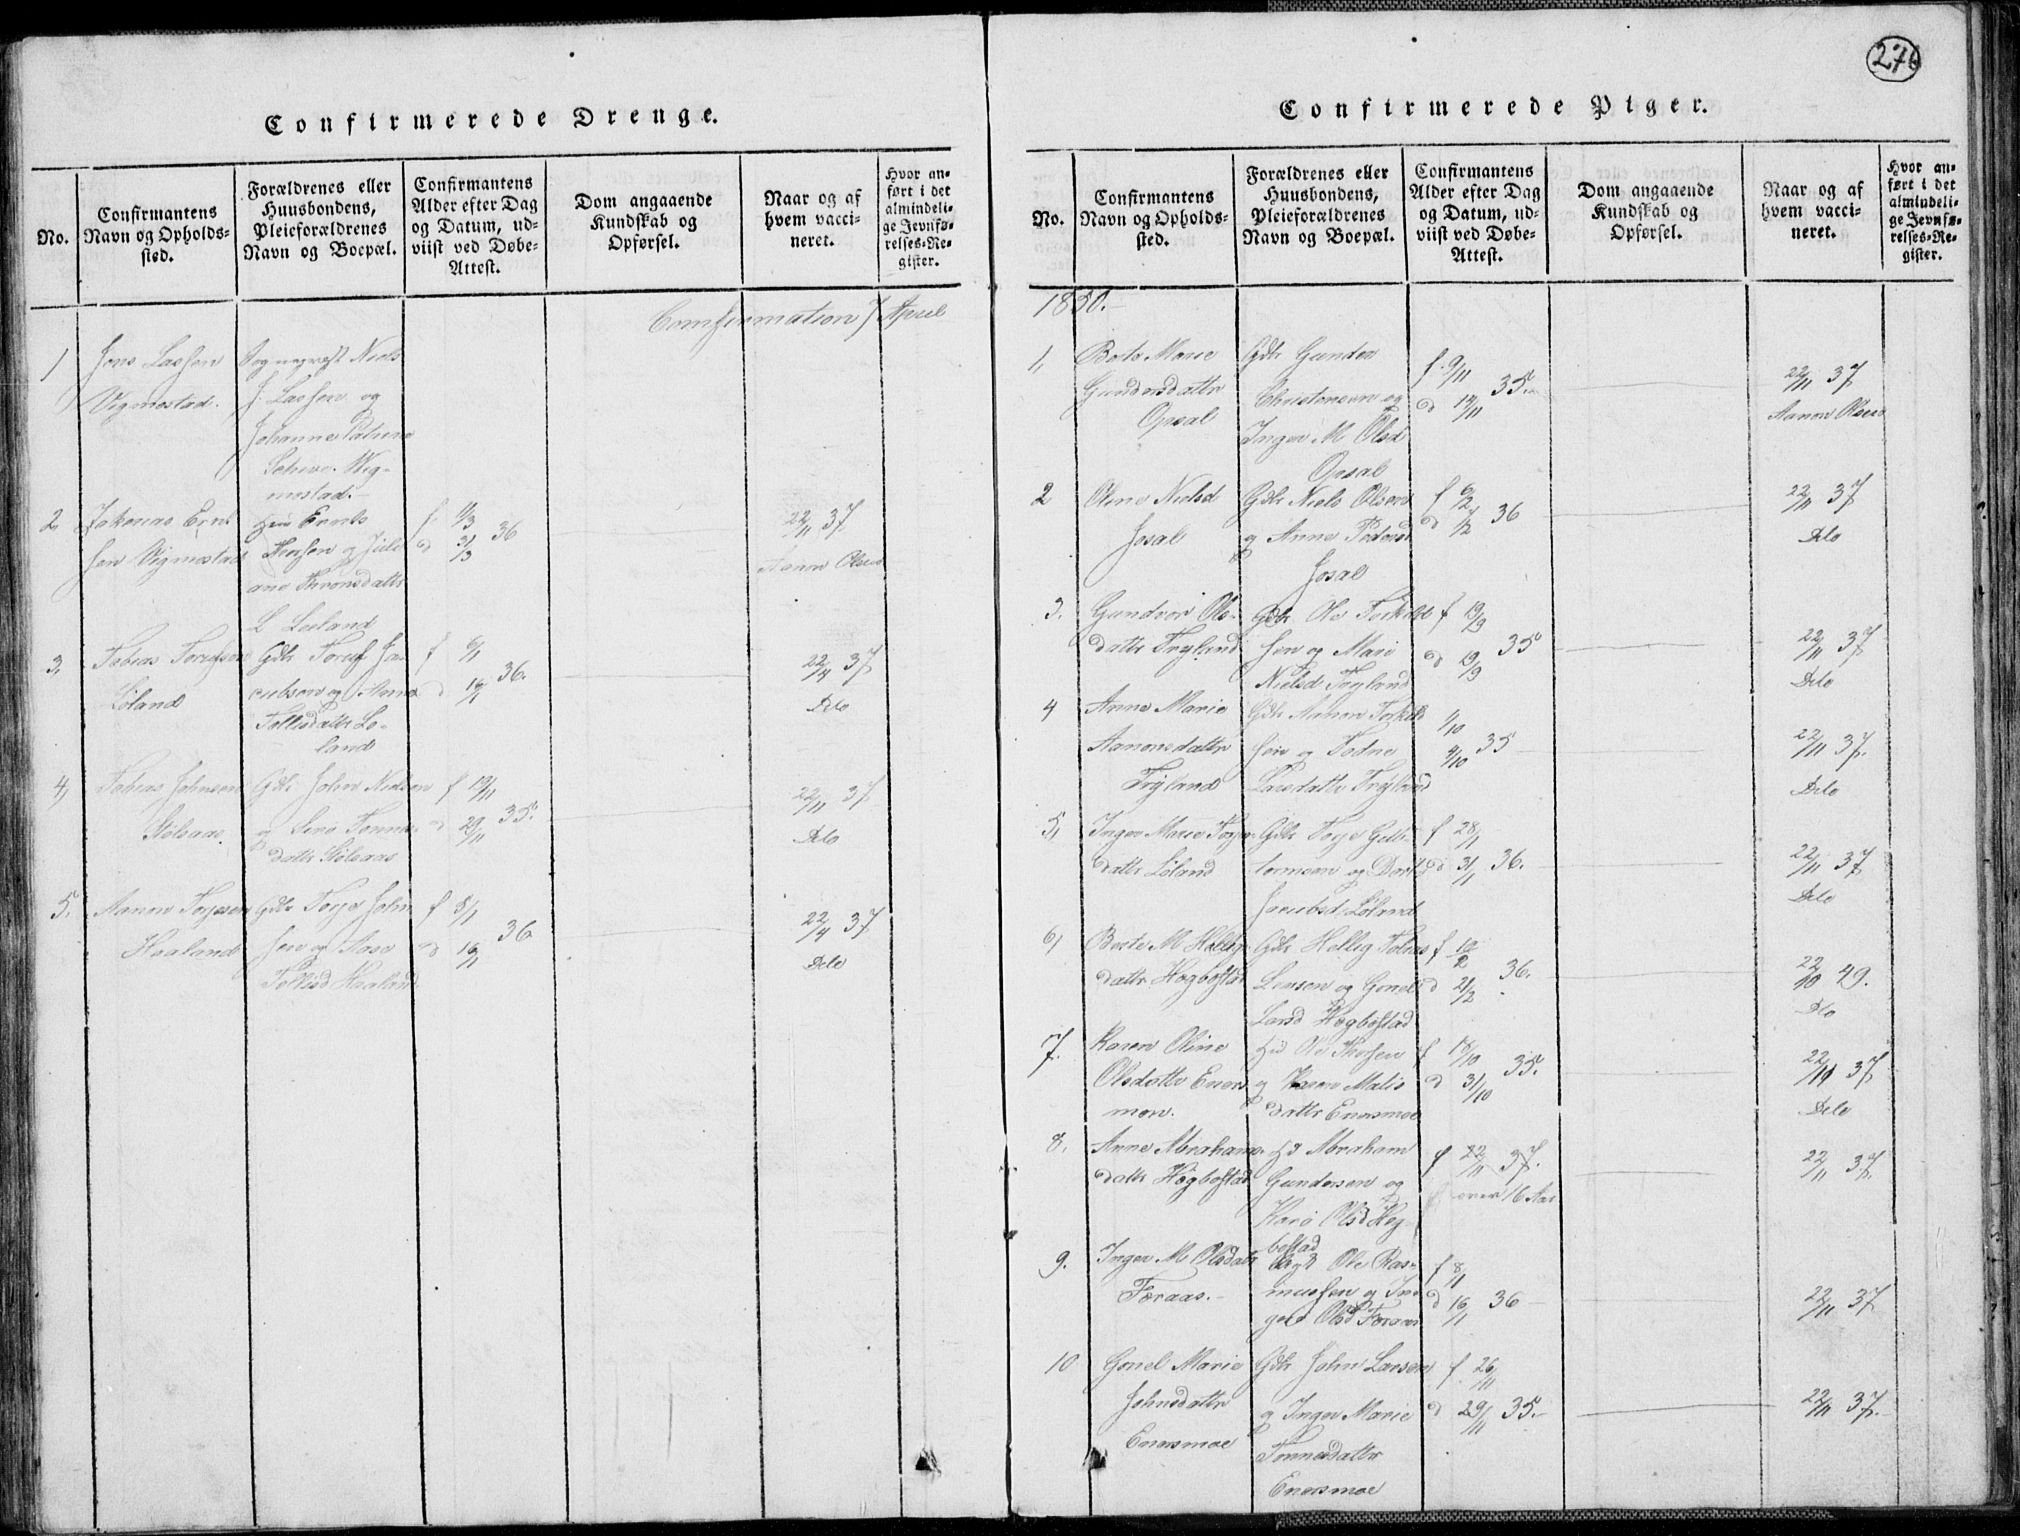 276
Confirmerede Drenge.
No.
Confirmantens
Navn og Opholds-
sted.
Forældrenes eller
Huusbondens,
Pleieforældrenes
Navn og Boepæl.
Confirmantens
Alder efter Dag
og Datum, ud-
viist ved Døbe-
Attest.
Dom angaaende
Kundskab og
Opførsel.
Naar og af
hvem vacci-
neret.
Hvor an-
ført i det
almindeli-
ge Jevnfø-
relses-Re-
gister.
Comfirmation 7 April
1
Jens Lassen
Vigmostad.
Sognepræst Niels
J. Lassen og
Johanne
Schive. Wig-
mostad.
2
Ernt
sen Vigmostad
Ernts
Thorsen og Juli
ane Thronsdattr
L Leeland
f. 11/3
d 31/3
36
22/11 37
Aanon Olsen
3,
Tobias Torjusen
Löland
Gdb Ja-
cobsen og Anna
Tollisdattr Lö-
land
f 6/1
d 16/1
36.
22/4 37
Dito
4,
Tobias Johnsen
Stölsaas.
Gdb John Nielsen
og Sirø Tønnes
dattr Stölsaas
f 19/11
d 29/11
35.
22/11 37
Dito
5.
Aanon Torjesen
Haaland
Gdb Torje John
sen og Aase
Tollisd Haaland
f 8/1
d 16/1
36
22/4 37
Dito
Confirmerede Piger.
No.
Confirmantens
Navn og Opholds-
sted.
Forældrenes eller
Huusbondens,
Pleieforældrenes
Navn og Boepæl.
Confirmantens
Alder efter Dag
og Datum, ud-
viist ved Døbe-
Attest.
Dom angaaende
Kundskab og
Opførsel.
Naar og af
hvem vacci-
neret.
Hvor an-
ført i det
almindeli-
ge Jevnfø-
relses-Re-
gister.
1850.
1,
Berte Marie
Gundersdattr
Opsal
Gdb Gunder
Christensen og
Inger M Olsd
Opsal
f. 9/11
d 14/11
35.
22/11 37
Aanon Olsen
2
Oline Nielsd
Josal
Gdb Niels Olsen
og Anne Pedersd
Josal
f 6/2
d 7/2
36
22/11 37
Dito
3.
Gundvor Ols-
dattr Tryland
Gdb Ole Torkild
sen og Mari
Nielsd Tryland
f 19/9
d 19/9
35
22/11 37
Dito
4
Anne Marie
Aanonsdattr
Tryland
Gdb Aanon Torkild
sen og Todne
Larsdattr Tryland
1/10
4/10
35
22/11 37.
Dito
5,
Inger Marie Torje-
dattr Löland
Gdb Torje Gutt-
tormsen og Dort
Jacobsd. Löland
f 28/1
d 31/1
36.
22/11 37
Dito
6,
Berte M Helleg-
dattr Hægbostad
Gdb Helleg Tobias
sen og Gonel
Larsd Hægbostad
f 19/2
d 21/2
36.
22/10 49.
Dto
7.
Karen Oline
Olsdattr Enes
moe.
Hd Ole Thorsen
og Karen Matis
dattr Enesmoe
f 18/10
d 31/10
35.
22/11 37
Dito
8.
Anne Abrahams-
dattr Hægbostad
Hd Abraham
Gundersen og
Karø Olsd Hæg-
bostad
f 22/11 37.
over 16 Aar
22/11 37.
9.
Inger M Olsdatr
Foraas.
Ole Ras-
mussen og In-
ger Olsd Foraas
f 8/1
d 16/1
36
22/11 37
10
Gonel Marie
Johnsdattr
Enersmoe
Gdb John Larsen
og Inger Marie
Tønnesdattr
Enersmoe
f. 26/11
d 29/11
35.
22/11 37.